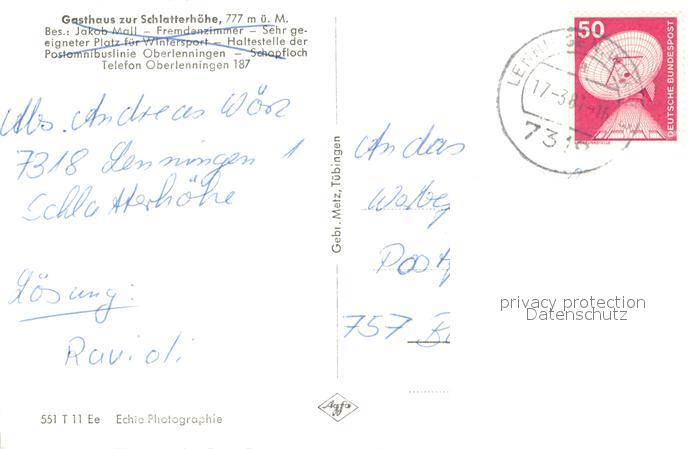 Gasthaus zur Schlatterhöhe, 777 m ü. M.
Bes.: Jakob Mall – Fremdenzimmer – Sehr ge-
eigneter Platz für Wintersport – Haltestelle der
Postomnibuslinie Oberlenningen – Schopfloch
Telefon Oberlenningen 187
Abs. Andreas Wörz
7318 Lenningen 1
Schlatterhöhe
Lösung:
Ravioli
551 T 11 Ee Echte Photographie
Gebr. Metz, Tübingen
Agfa
An das
Post
757 B
50
DEUTSCHE BUNDESPOST
LENNI
17-3.8
731
privacy protection
Datenschutz